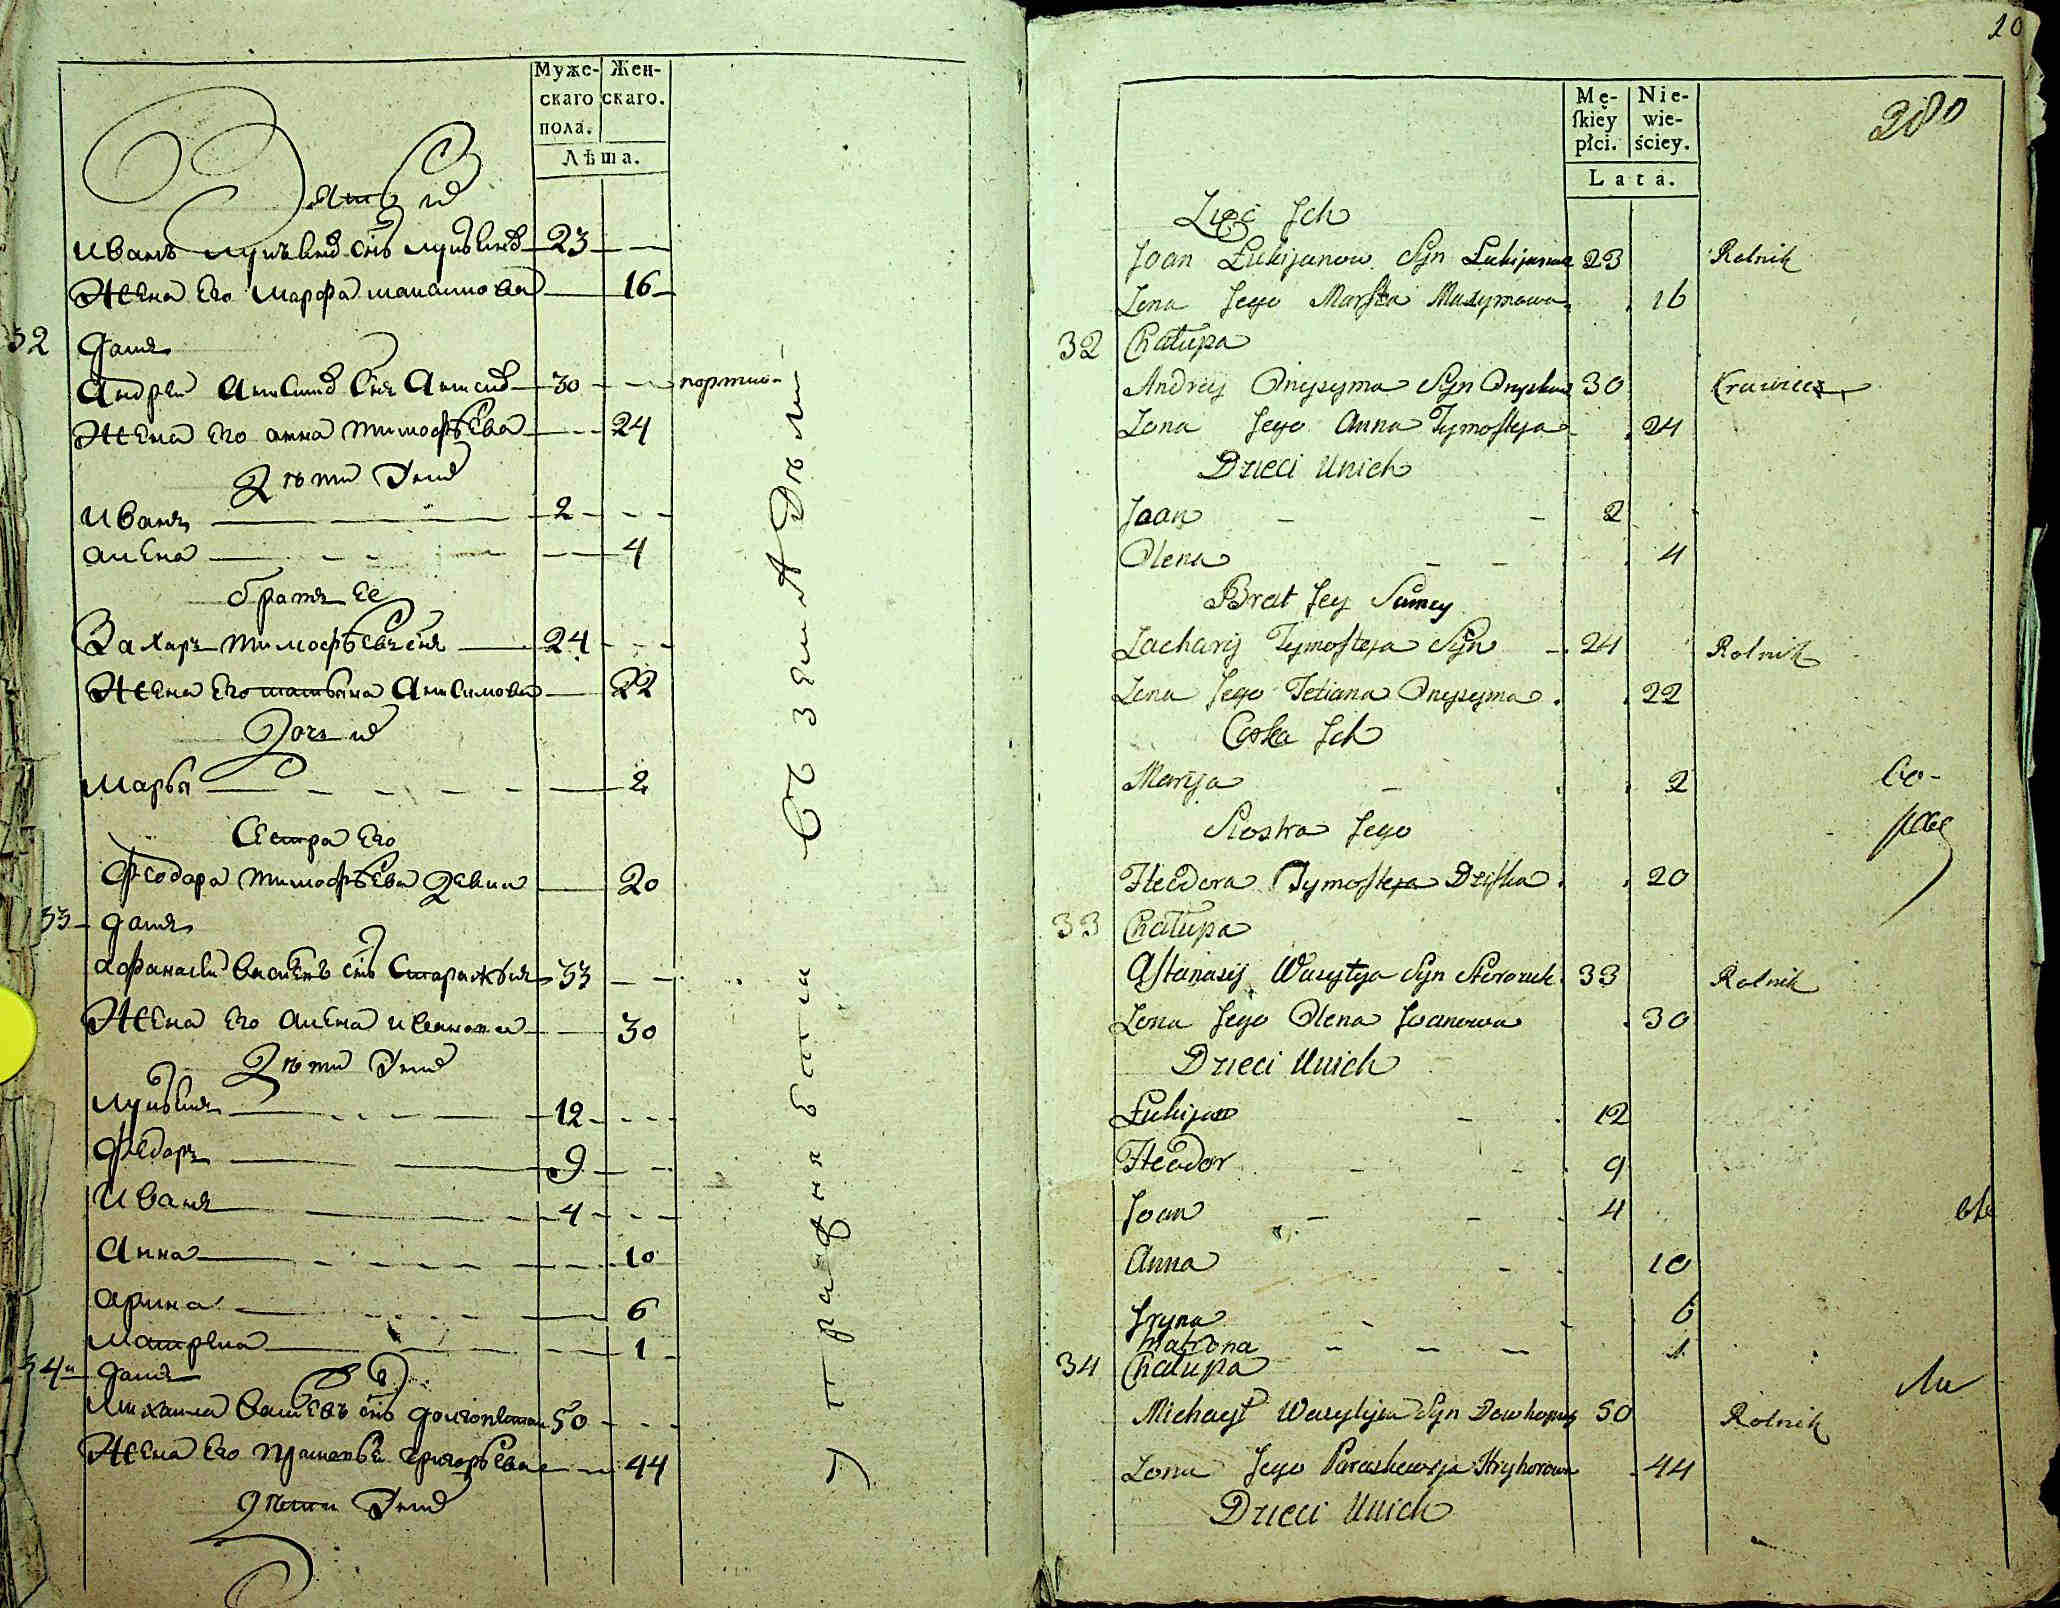 Муже-
скаго
пола.
Жен-
скаго.
Лѣта.
Зять ıхъ
Иванъ Лукьяновъ снъ Лукьяновъ 23
Жена Его Марфа 16
32 Домъ
Андрей снъ 30 портной
Жена Его Анна Тимофѣева 24
Дѣти У нихъ
Иванъ 2
Алена 4
братъ ЕЕ
Захаръ Тимофѣевъ снъ 24
Жена Его Татьяна 22
Дочь ихъ
Марья 2
Сестра Его
Феодора Тимофѣева Девка 20
33 Домъ
Афанасей Васильевъ снъ 33
Жена Его Алена Иванова 30
Дѣти У нихъ
Лукьянъ 12
Федоръ 9
Иванъ 4
Анна 10
Арина 6
Матрена 1
34 Домъ
Михайла Васильевъ снъ 50
Жена Его Григорьева 44
Дѣти У нихъ
Упражняются Въ Земледѣлии
10
280
Mę-
ſkiey
płci.
Nie-
wie-
ściey.
Lata.
Zięć Jch
Joan Łukijanow Syn 23 Rolnik
Zona Jego Marfta 16
32 Chałupa
Andrey Onysyma Syn 30 Krawiec
Zona Jego Anna Tymofteja 24
Dzieci Unich
Joan 2
Olena 4
Brat Jey
Zachary Tymofteja Syn 24 Rolnik
Zona Jego Tetiana Onysyma 22
Corka Jch
Marya 2
Siostra Jego
Fteodora Tymofteja 20
33 Chałupa
Aftanasij Wasylya Syn 33 Rolnik
Zona Jego Olena Joanowa 30
Dzieci Unich
Łukijan 12
Fteodor 9
Joan 4
Anna 10
Jryna 6
Matrona 1
34 Chałupa
Michaył Wasylija Syn 50 Rolnik
Zona Jego Paraskewija Hryhorowa 44
Dzieci Unich